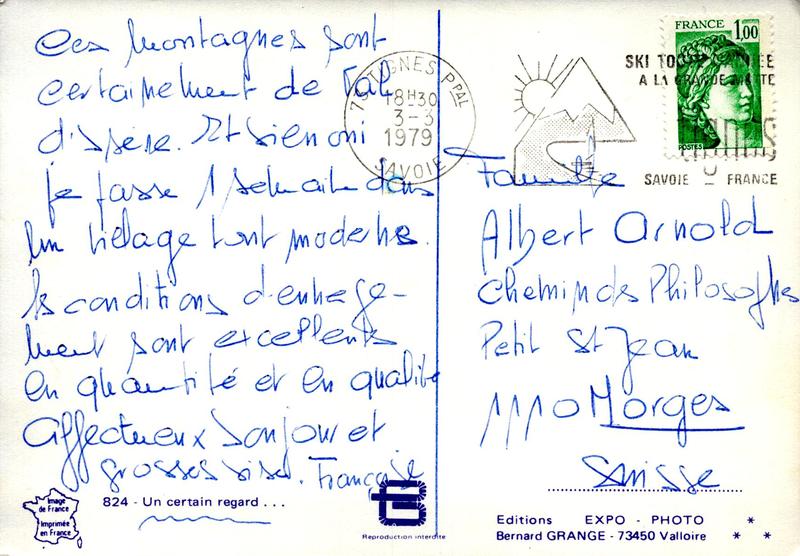 Ces montagnes sont
certainement de Val
d'Isère. Et bien moi
je passe 1 semaine dans
un village tout moderne.
les conditions d'enneige-
ment sont excellentes
en quantité et en qualité
Affectueux bonjour et
grosses bises. Françoise
824 - Un certain regard . . .
Image
de France
Imprimée
en France
Reproduction interdite
73 TIGNES PPAL
18H30
3-3
1979
SAVOIE
SKI TOUTE L'ANNEE
A LA GRANDE MOTTE
TIGNES
SAVOIE - FRANCE
FRANCE 1,00
POSTES
Famille
Albert Arnold
Chemin des Philosophes
Petit St Jean
1110 Morges
Suisse
Editions EXPO - PHOTO
Bernard GRANGE - 73450 Valloire